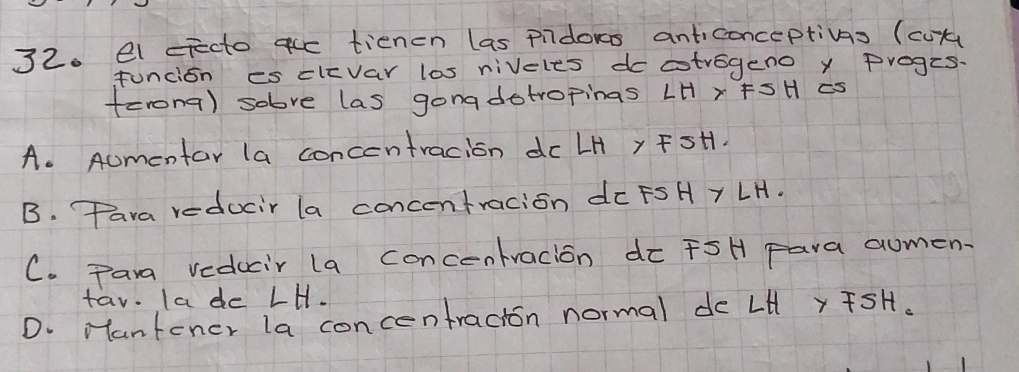 32. el efecto que tienen las Píldoras anticonceptivas (cuya
función es elevar los niveles de estrógeno y proges-
terona) sobre las gonadotropinas LH y FSH es
A. Aumentar la concentración de LH y FSH.
B. Para reducir la concentración de FSH y LH.
C. Para reducir la concentración de FSH para aumen-
tar. la de LH.
D. Mantener la concentración normal de LH y FSH.